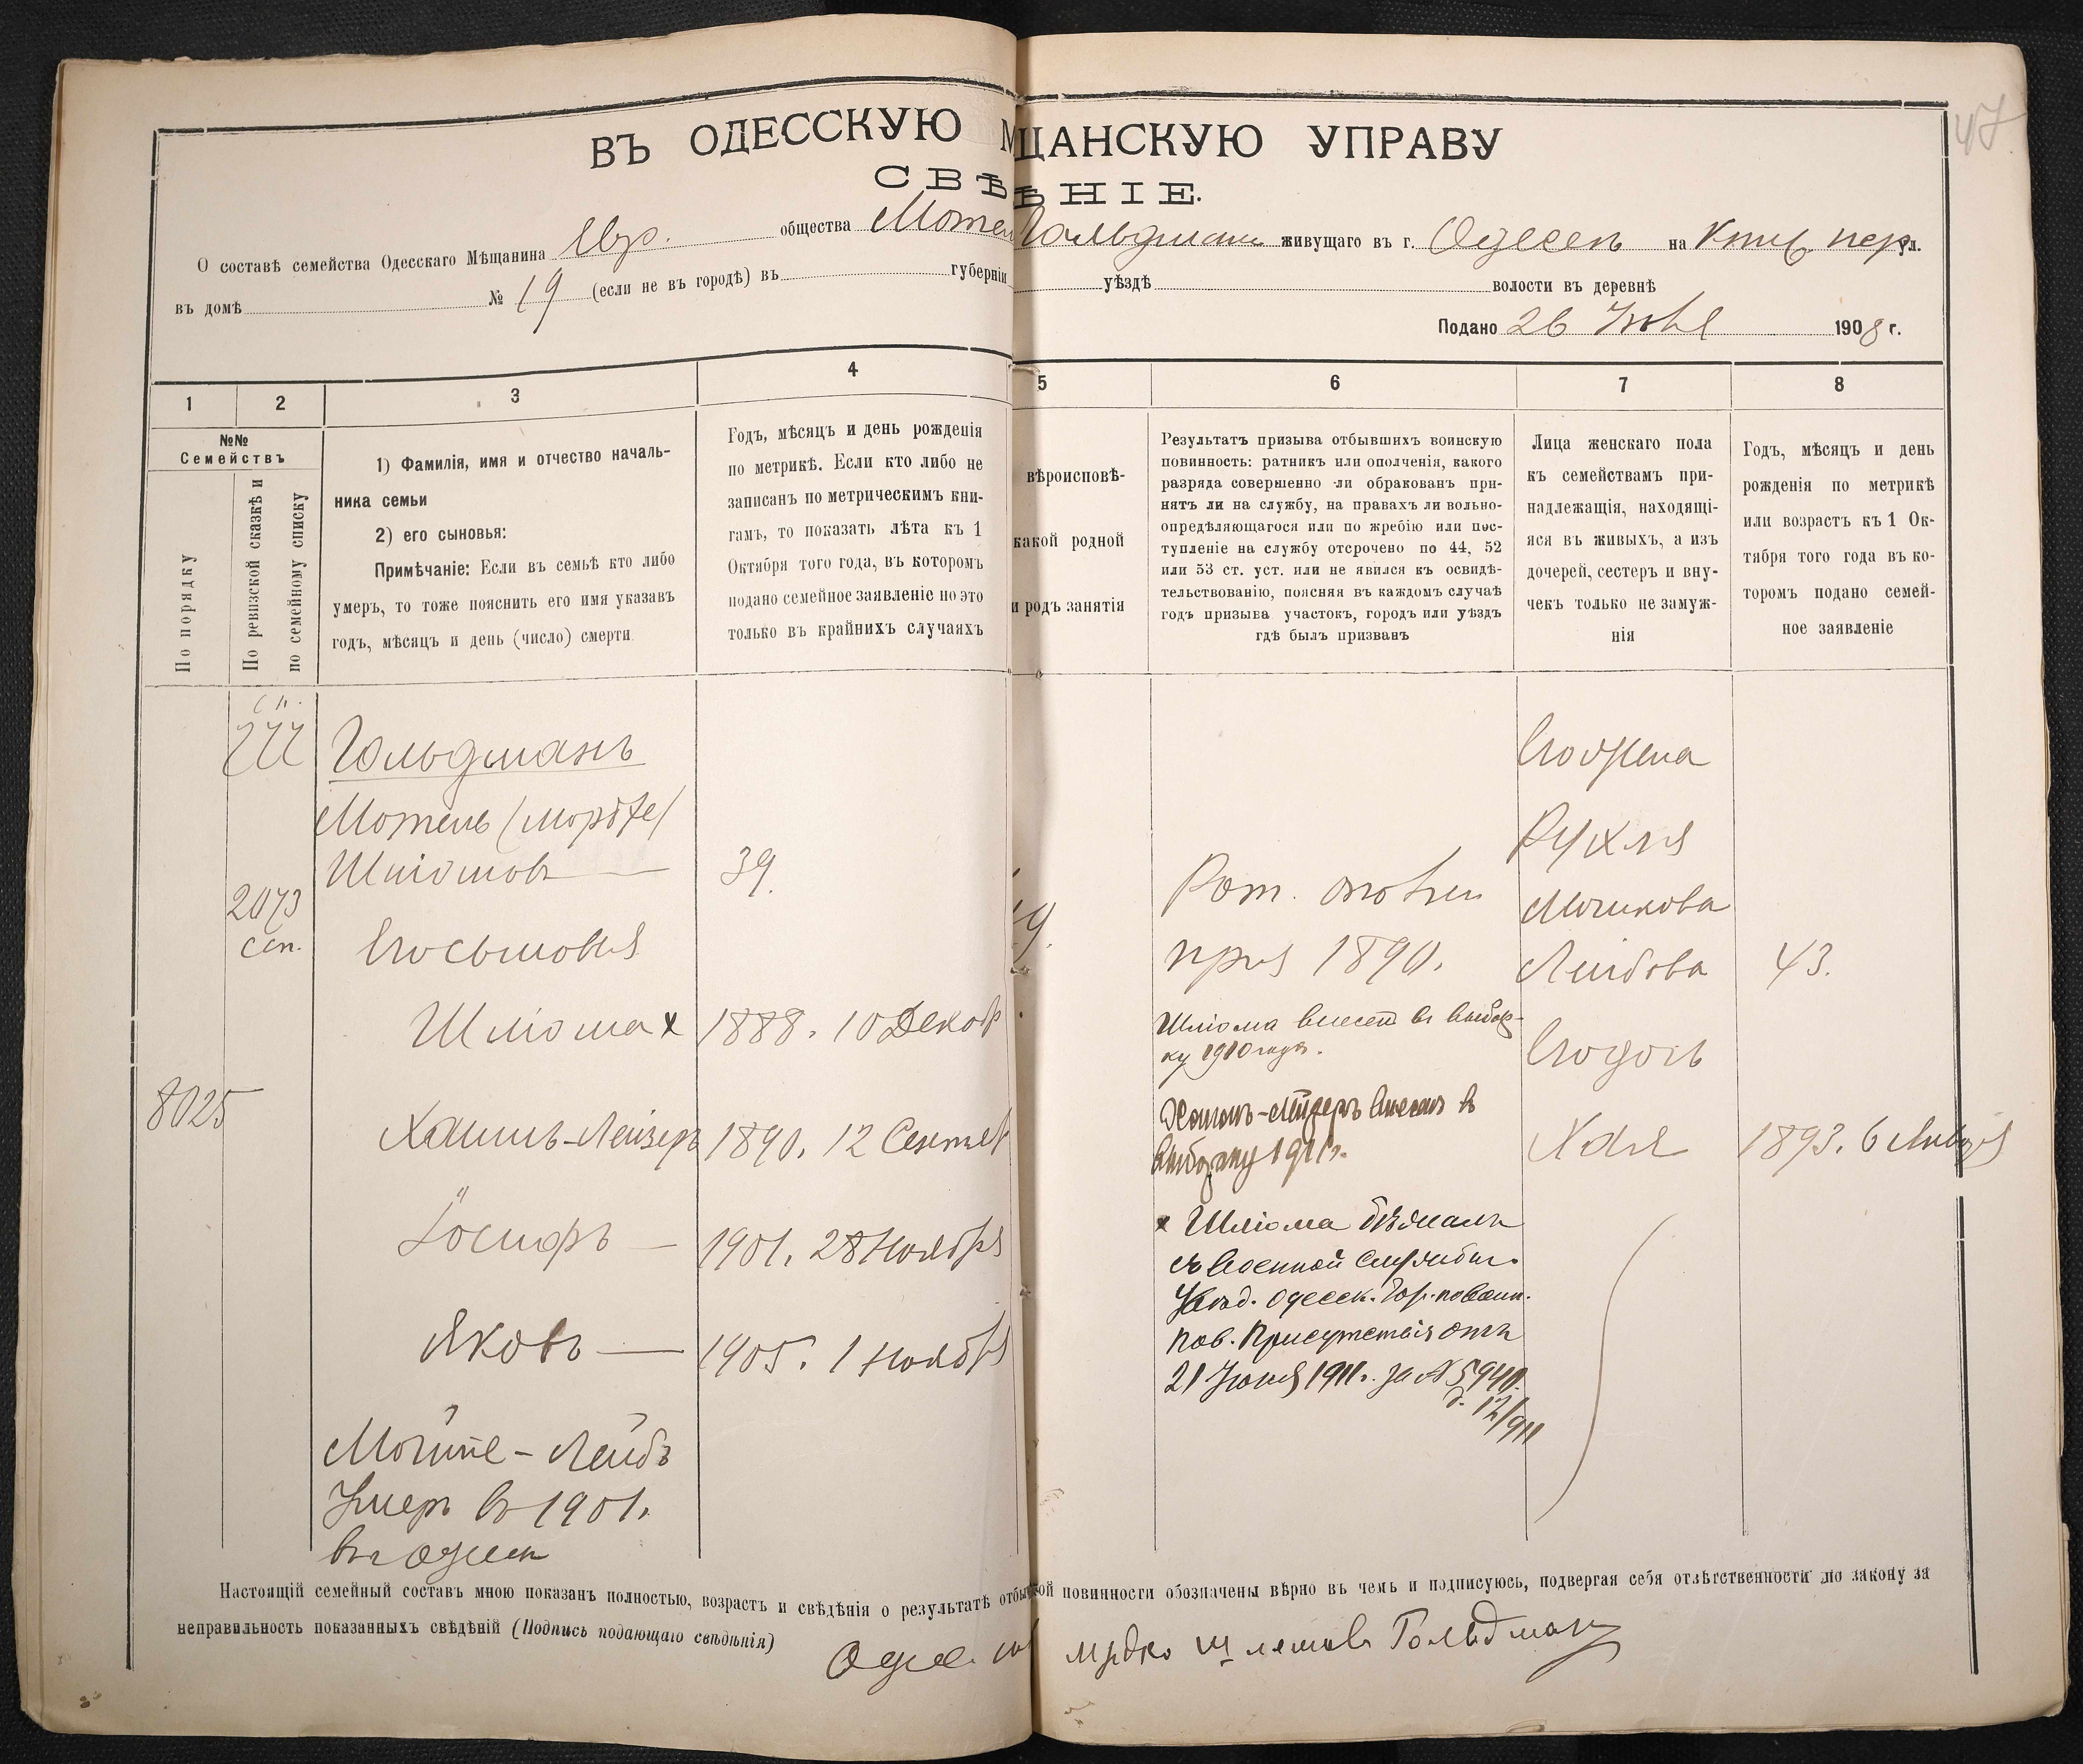 47
ВЪ ОДЕССКУЮ М ЩАНСКУЮ УПРАВУ
СВѢ ѢНІЕ.
О составѣ семейства Одесскаго Мѣщанина Евр. общества Мотел Гольдман живущаго въ г. Одессѣ на пер. ул.
въ домѣ № 19 (если не въ городѣ) въ губерніи уѣздѣ волости въ деревнѣ
Подано 26 1908 г.
1 2 3 4 5 6 7 8
№№
Семействъ
По порядку
По ревизской сказкѣ и
по семейному списку
1) Фамилія, имя и отчество началь-
ника семьи
2) его сыновья:
Примѣчаніе: Если въ семьѣ кто либо
умеръ, то тоже пояснить его имя указавъ
годъ, мѣсяцъ и день (число) смерти
Годъ, мѣсяцъ и день рожденія
по метрикѣ. Если кто либо не
записанъ по метрическимъ кни-
гамъ, то показать лѣта къ 1
Октября того года, въ которомъ
подано семейное заявленіе но это
только въ крайнихъ случаяхъ
вѣроисповѣ-
какой родной
и родъ занятія
Результатъ призыва отбывшихъ воинскую
повинность: ратникъ или ополченія, какого
разряда совершенно ли обракованъ при-
нятъ ли на службу, на правахъ ли вольно-
опредѣляющагося или по жребію или пос-
тупленіе на службу отсрочено по 44, 52
или 53 ст. уст. или не явился къ освидѣ-
тельствованію, поясняя въ каждомъ случаѣ
годъ призыва участокъ, городъ или уѣздъ
гдѣ былъ призванъ
Лица женскаго пола
къ семействамъ при-
надлежащія, находящі-
яся въ живыхъ, а изъ
дочерей, сестеръ и вну-
чекъ только не замуж-
нія
Годъ, мѣсяцъ и день
рожденія по метрикѣ
или возрастъ къ 1 Ок-
тября того года въ ко-
торомъ подано семей-
ное заявленіе
Гольдманъ
Мотель (Мордхе)
Шліомовъ 39.
2073
сем.
Его сыновья
Шліома x 1888. 10 Декабр
8025
Хаимъ-Лейзеръ 1890. 12 Сентяб
Іосифъ 1901. 28 Ноября
Яковъ 1905. 1 Ноября
Мошке-Лейбъ
Умеръ въ 1901.
въ Одессѣ
Рат. ополч
приз 1890.
Шліома внесен в выбор-
ку 1910 года.
Хаимъ-Лейзеръ внесенъ в
выборку 1911 г.
x Шліома бѣжалъ
съ Военной Службы.
Увѣд. Одесск. Гор. по воин.
пов. Присутствія отъ
21 Іюня 1911 г. за № 5940.
12/911
Его жена
Рухля
Мошкова
Лейбова 43.
Его дочь
Хая 1893. 6 Января
Настоящій семейный составъ мною показанъ полностью, возрастъ и свѣдѣнія о результатѣ отбы ской повинности обозначены вѣрно въ чемъ и подписуюсь, подвергая себя отвѣтственности по закону за
неправильность показанныхъ свѣдѣній (Подпись подающаго свѣдѣнія) Одес. Мрдко Шлемов Гольдман